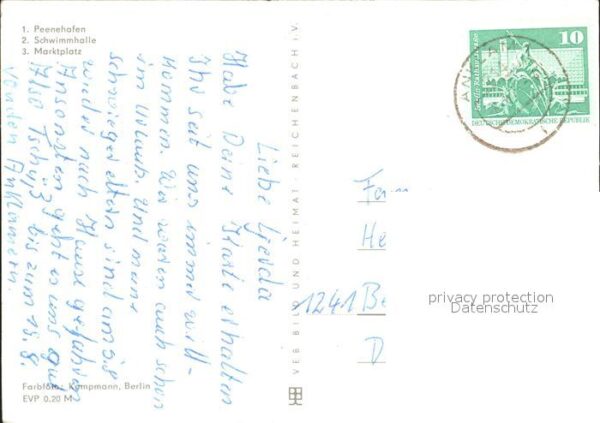 1. Peenehafen
2. Schwimmhalle
3. Marktplatz
Liebe Gerda
Habe Deine Karte erhalten
Ihr seit uns immer will-
kommen. Wir waren auch schon
im Urlaub. Und meine
schwiegereltern sind am 8
wieder nach Hause gefahren
Ansonsten geht es uns gut
Also Tschüß bis zum 15. 8.
von den Anklamern.
VEB BILD UND HEIMAT REICHENBACH i. V.
10
DEUTSCHE DEMOKRATISCHE REPUBLIK
Fam
He
1241 Be
D
privacy protection
Datenschutz
Farbfoto: Kampmann, Berlin
EVP 0.20 M